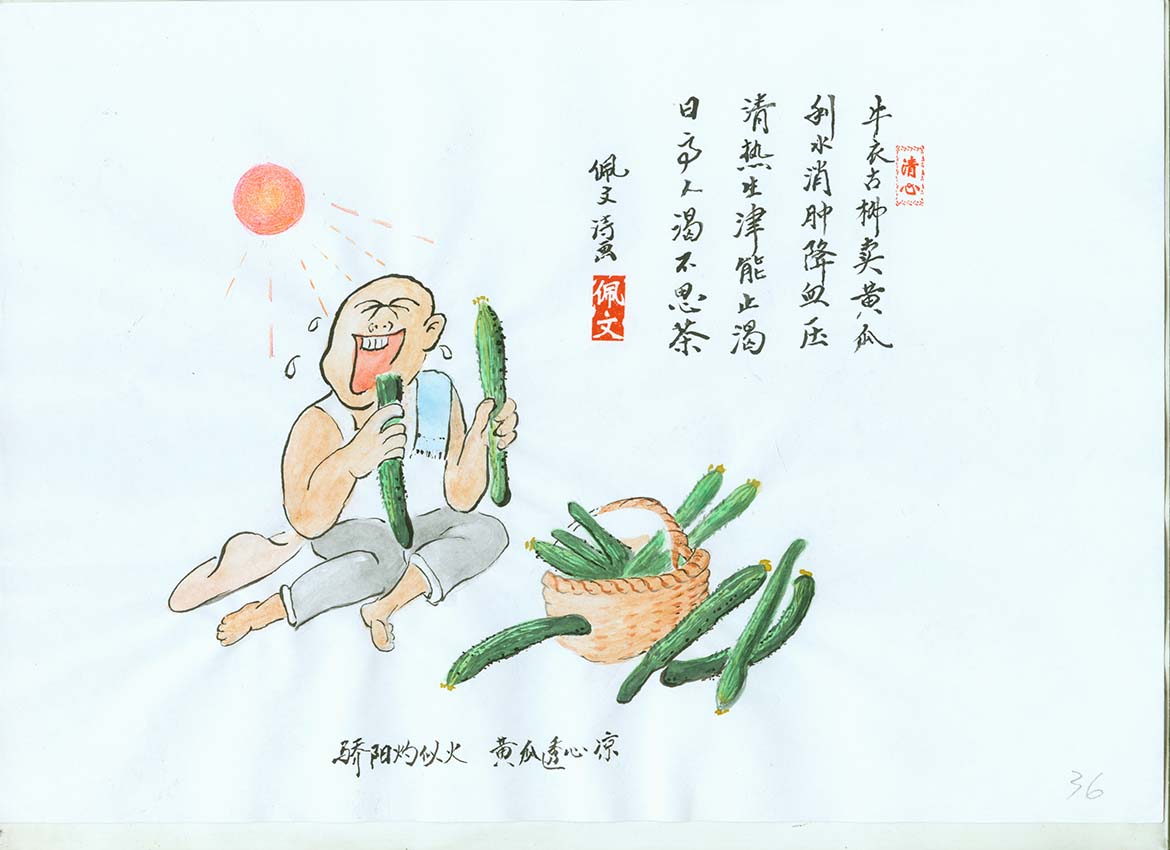 清心
牛衣古柳卖黄瓜
利水消肿降血压
清热生津能止渴
日高人渴不思茶
佩文诗画
佩文
骄阳灼似火 黄瓜透心凉
36